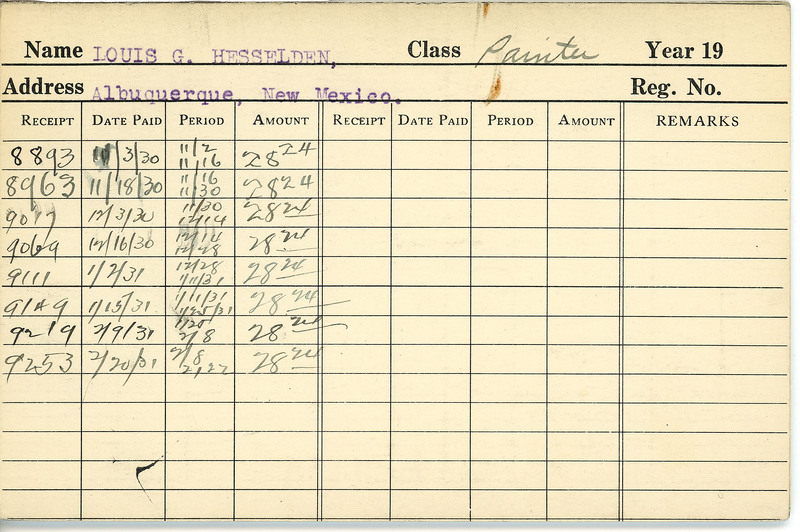 Name LOUIS G. HESSELDEN, Class Painter Year 19
Address Albuquerque, New Mexico. Reg. No.
RECEIPT DATE PAID PERIOD AMOUNT RECEIPT DATE PAID PERIOD AMOUNT REMARKS
8893 11/3/30 11/2 11/16 28 24
8963 11/18/30 11/16 11/30 28 24
9017 12/3/30 11/30 12/14 28 24
9069 12/16/30 12/14 12/28 28 24
9111 1/2/31 12/28 1/11/31 28 24
9149 1/15/31 1/11/31 1/25/31 28 24
9219 2/9/31 1/25/ 2/8 28 24
9253 2/20/31 2/8 2/22 28 24